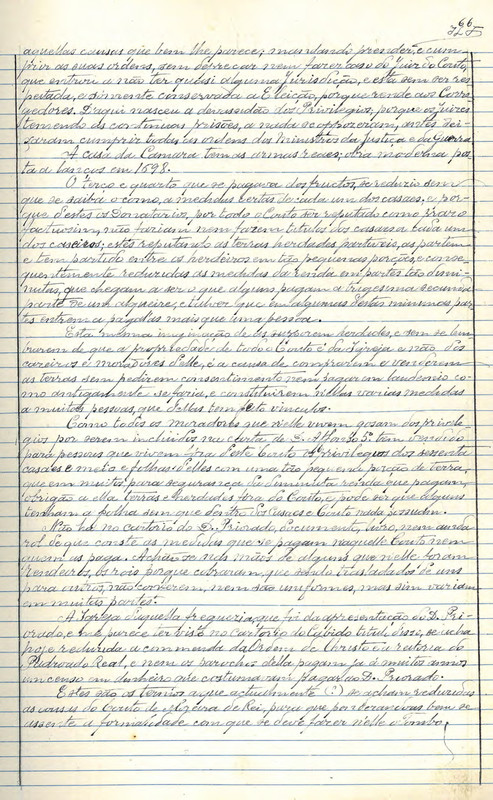 66
aquellas causas que bem lhe parece; mandando prender, e cum-
prir as suas ordens, sem deprecar nem fazer caso do Juiz do Couto,
que entrou a não ter quasi alguma jurisdicção, e está sem ser res-
peitada, e sómente conservada a Eleição, porque rende aos Corre-
gedores. D'aqui nasceu a devassidão dos Privilegios, porque os Juizes
temendo as continuas prisões, a nada se oppozeram, antes dei-
xaram cumprir todas as ordens dos Ministros da Justiça e da Guerra.
A casa da Camara tem as armas reaes; obra moderna pos-
ta a lanços em 1598.
O terço e quarto que se pagava dos fructos, se reduziu sem
que se saiba o como, a medidas certas de cada um dos casaes, e por-
que d'estes os Donatarios, por todo o Couto ser reputado como
não faziam nem fazem titulos dos casaes a cada um
dos caseiros; estes reputando as terras herdades partiveis, as partem
e tem partido entre os herdeiros em tão pequenas porções, e conse-
quentemente reduzidas as medidas da renda em partes tão dimi-
nutas, que chegam a ser o que alguns pagam a trigesima segunda
parte de um alqueire; e talvez que em algumas d'estas minimas par-
tes entrem a pagal-as mais que uma pessoa.
Esta mesma imaginação de as suporem herdades, e sem se lem-
brarem de que a propriedade de todo o Couto é da Igreja e não dos
caseiros e moradores d'elle, é a causa de comprarem e venderem
as terras sem pedirem consentimento nem pagarem laudemio co-
mo antigamente se fazia, e constituirem n'ellas varias medidas
a muitas pessoas, que d'ellas tem feito vinculos.
Como todos os moradores que n'elle vivem gosam dos privile-
gios por serem incluidos na Carta de D. Affonso 5.º tem
para pessoas que vivem fóra d'este Couto os Privilegios dos sessenta
casaes e meio e folhas d'elles com uma tão pequena porção de terra,
que em muitos para segurança da diminuta renda que pagam,
obrigão a ella terras e herdades fóra do Couto, e póde ser que alguns
tenham a folha sem que dentro dos casaes e Couto nada possuam.
Não ha no cartorio do D. Priorado, documento, livro, nem ainda
rol de que conste as medidas que se pagam naquelle Couto nem
quem as paga. Achão-se nas mãos de alguns que nelle foram
rendeiros, os rois porque cobraram, que sendo trasladados de uns
para outros, não conferem, nem são uniformes, mas sim variam
em muitas partes.
A Igreja d'aquella freguezia, que foi da apresentação do D. Pri-
orado, e me parece ter visto no cartorio do Cabido titulo d'isso, se acha
hoje reduzida a commenda da Ordem de Christo e reitoria do
Padroado Real, e nem os parochos della pagam já á muitos annos
um censo em dinheiro que costumavam pagar ao D. Priorado.
Estes são os termos a que actualmente (?) se acham reduzidas
as cousas do Couto de Moreira de Rei, para que por
assente a formalidade com que se deve fazer nelle o Tombo.